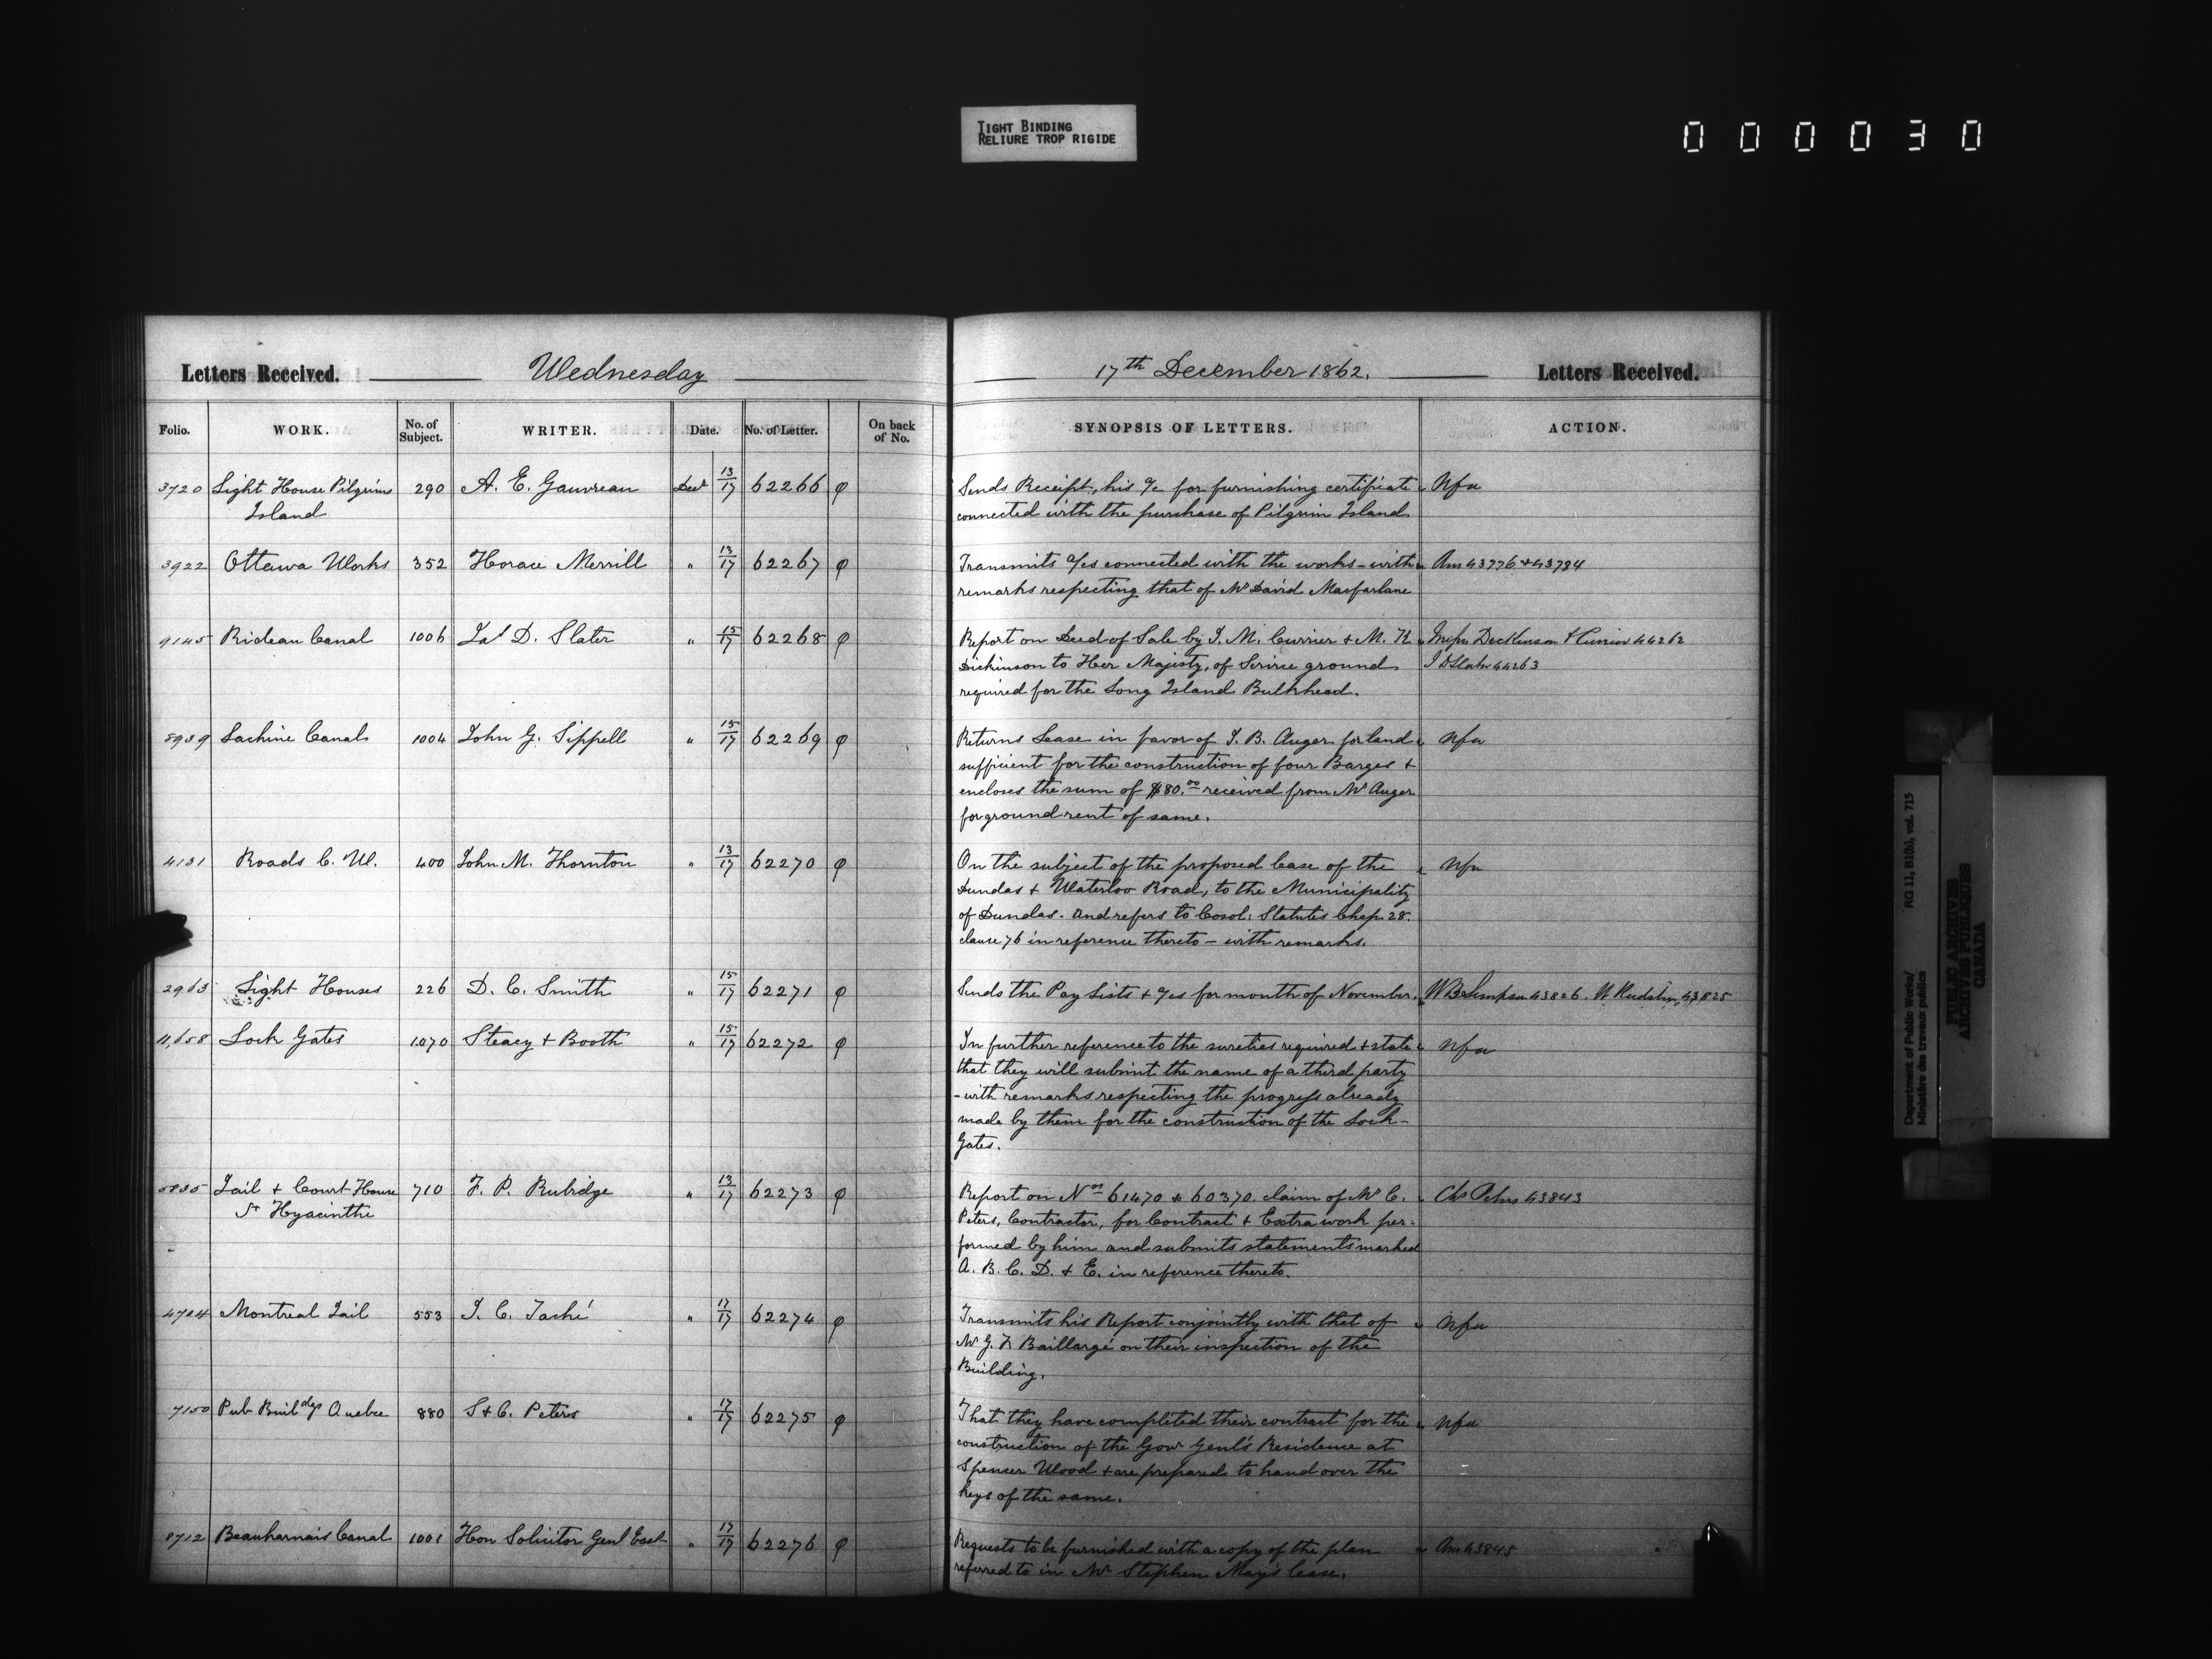 TIGHT BINDING
RELIURE TROP RIGIDE
000030
Letters Received. Wednesday
17th December 1862. Letters Received.
Folio. WORK. No. of Subject. WRITER. Date. No. of Letter. On back of No.
SYNOPSIS OF LETTERS. ACTION.
3720 Light House Pilgrims 290 A. E. Gauvreau Decr 13/17 62266 φ
Island
Sends Receipt, his a/c for furnishing certificate Nfa
connected with the purchase of Pilgrim Island.
3922 Ottawa Works 352 Horace Merrill " 13/17 62267 φ
Transmits a/cs connected with the works - with Ans 43776 + 43784
remarks respecting that of Mr David Macfarlane
9145 Rideau Canal 1006 Jas D. Slater " 15/17 62268 φ
Report on Deed of Sale by J. M. Currier + M. K. Messrs Dickinson & Currier 44262
Dickinson to Her Majesty, of ground J D Slater 44263
required for the Long Island Bulkhead.
8939 Lachine Canal 1004 John G. Sippell " 15/17 62269 φ
Returns Lease in favor of J. B. Auger for land Nfa
sufficient for the construction of four Barges +
encloses the sum of $80.00 received from Mr Auger
for ground rent of same.
4131 Roads C. W. 400 John M. Thornton " 13/17 62270 φ
On the subject of the proposed lease of the Nfa
Dundas + Waterloo Road, to the Municipality
of Dundas. And refers to Cosol: Statutes Chap. 28.
clause 76 in reference thereto - with remarks.
2963 Light Houses 226 D. C. Smith " 15/17 62271 φ
Sends the Pay Lists + a/cs for month of November. W B Simpson 43826. 43825
11,658 Lock Gates 1070 Steacy + Booth " 15/17 62272 φ
In further reference to the sureties required + state Nfa
that they will submit the name of a third party
- with remarks respecting the progress already
made by them for the construction of the Lock-
Gates.
5835 Jail + Court House 710 F. P. Rubidge " 13/17 62273 φ
St Hyacinthe
Report on Nos 61470 & 60370. claim of Mr C. Chs Peters 43843
Peters, Contractor, for Contract + Extra work per-
formed by him and submits statements marked
A. B. C. D. + E. in reference thereto.
4704 Montreal Jail 553 J. C. Taché " 17/17 62274 φ
Transmits his Report conjointly with that of Nfa
Mr G. F. Baillargé on their inspection of the
Building.
7150 Pub Buildgs Quebec 880 S + C. Peters " 17/17 62275 φ
That they have completed their contract for the Nfa
construction of the Govr Genl's Residence at
Spencer Wood + are prepared to hand over the
keys of the same.
8712 Beauharnais Canal 1001 Hon Solicitor Genl East " 17/17 62276 φ
Requests to be furnished with a copy of the plan Ans 43845
referred to in Mr Stephen May's lease.
Department of Public Works/ RG 11, B1(b), vol. 715
Ministère des travaux publics
PUBLIC ARCHIVES
ARCHIVES PUBLIQUES
CANADA